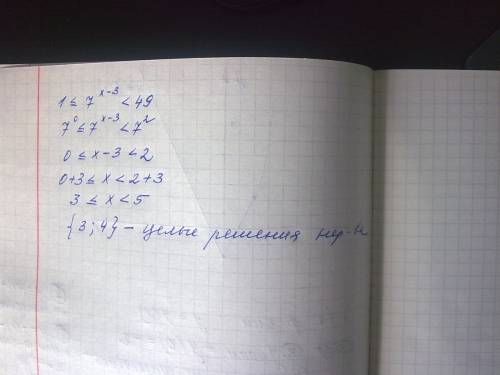 1 ≤ 7^(x-3) < 49
7^0 ≤ 7^(x-3) < 7^2
0 ≤ x-3 < 2
0+3 ≤ x < 2+3
3 ≤ x < 5
{3;4} - целые решения нер-в